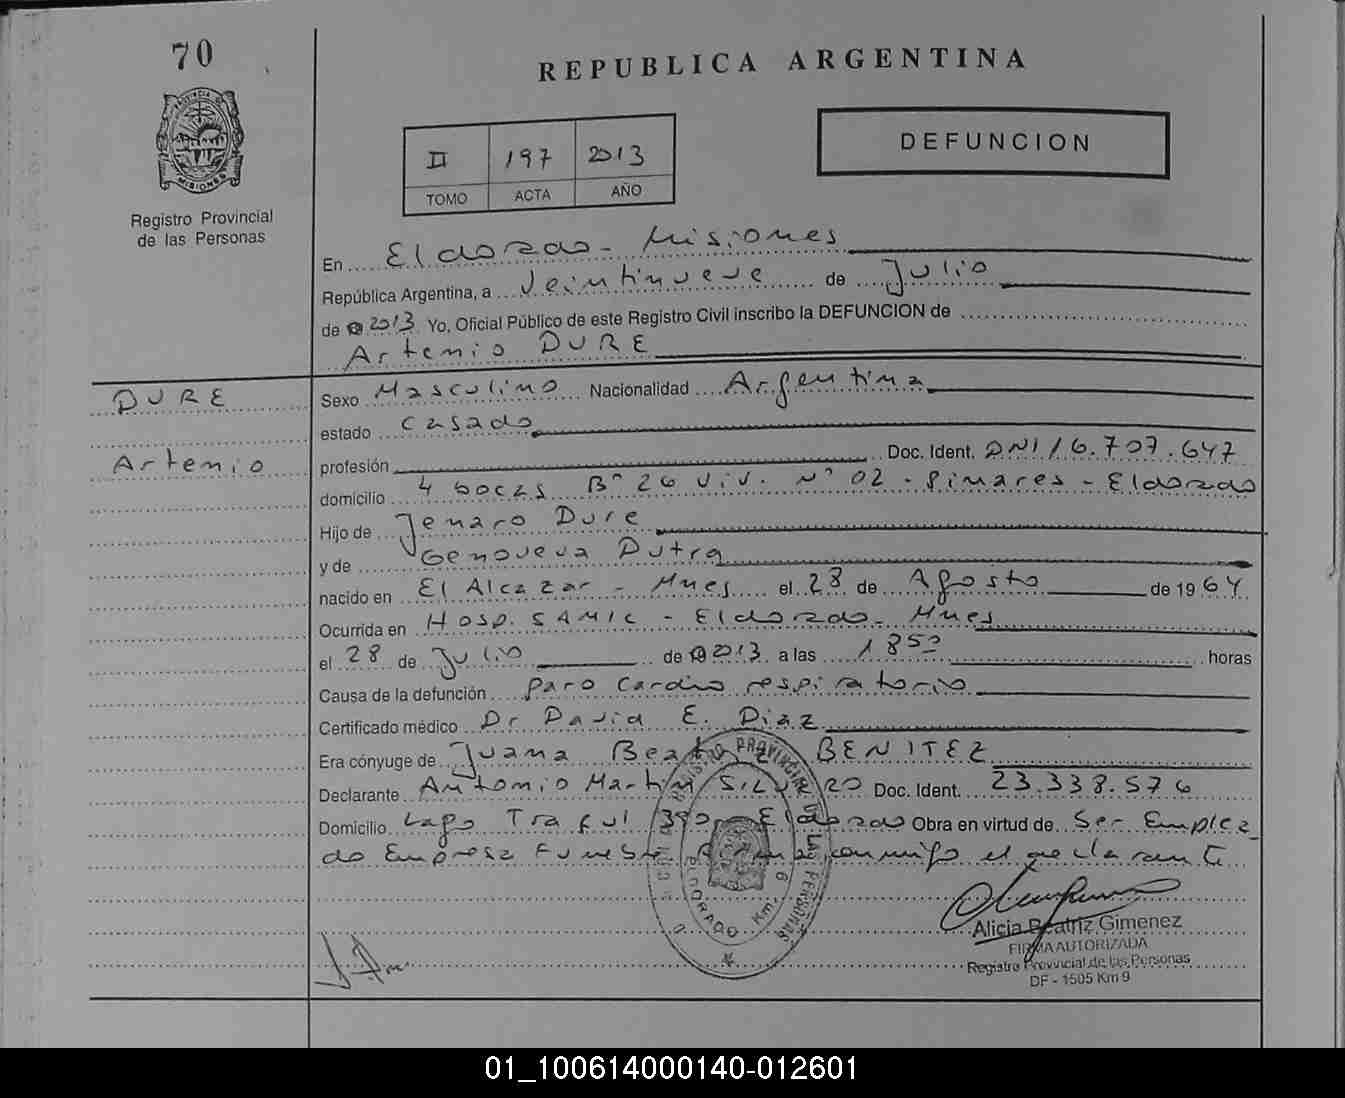 70
REPUBLICA ARGENTINA
PROVINCIA DE
MISIONES
Registro Provincial
de las Personas
II 197 2013
TOMO ACTA AÑO
DEFUNCION
En Eldorado - Misiones
República Argentina, a Veintinueve de Julio
de 2013 Yo, Oficial Público de este Registro Civil inscribo la DEFUNCION de
Artemio DURE
DURE
Artemio
Sexo Masculino Nacionalidad Argentina
estado Casado
profesión Doc. Ident. DNI 16.707.647
domicilio 4 bocas B° 26 Viv. N° 02 - Pinares - Eldorado
Hijo de Jenaro Dure
y de Genoveva Dutra
nacido en El Alcazar - Mnes el 28 de Agosto de 1964
Ocurrida en Hosp. SAMIC - Eldorado - Mnes
el 28 de Julio de 2013 a las 1850 horas
Causa de la defunción paro Cardio respiratorio
Certificado médico Dr David E. Diaz
Era cónyuge de Juana Beatriz BENITEZ
Declarante Antonio Martin Doc. Ident. 23.338.576
Domicilio Lago Traful Eldorado Obra en virtud de Ser Emplea_
do Empresa Funebre conmigo el declarante
REGISTRO PROVINCIAL DE LAS PERSONAS
ELDORADO Km.
Alicia Beatriz Gimenez
FIRMA AUTORIZADA
Registro Provincial de las Personas
DF - 1505 Km 9
01_100614000140-012601